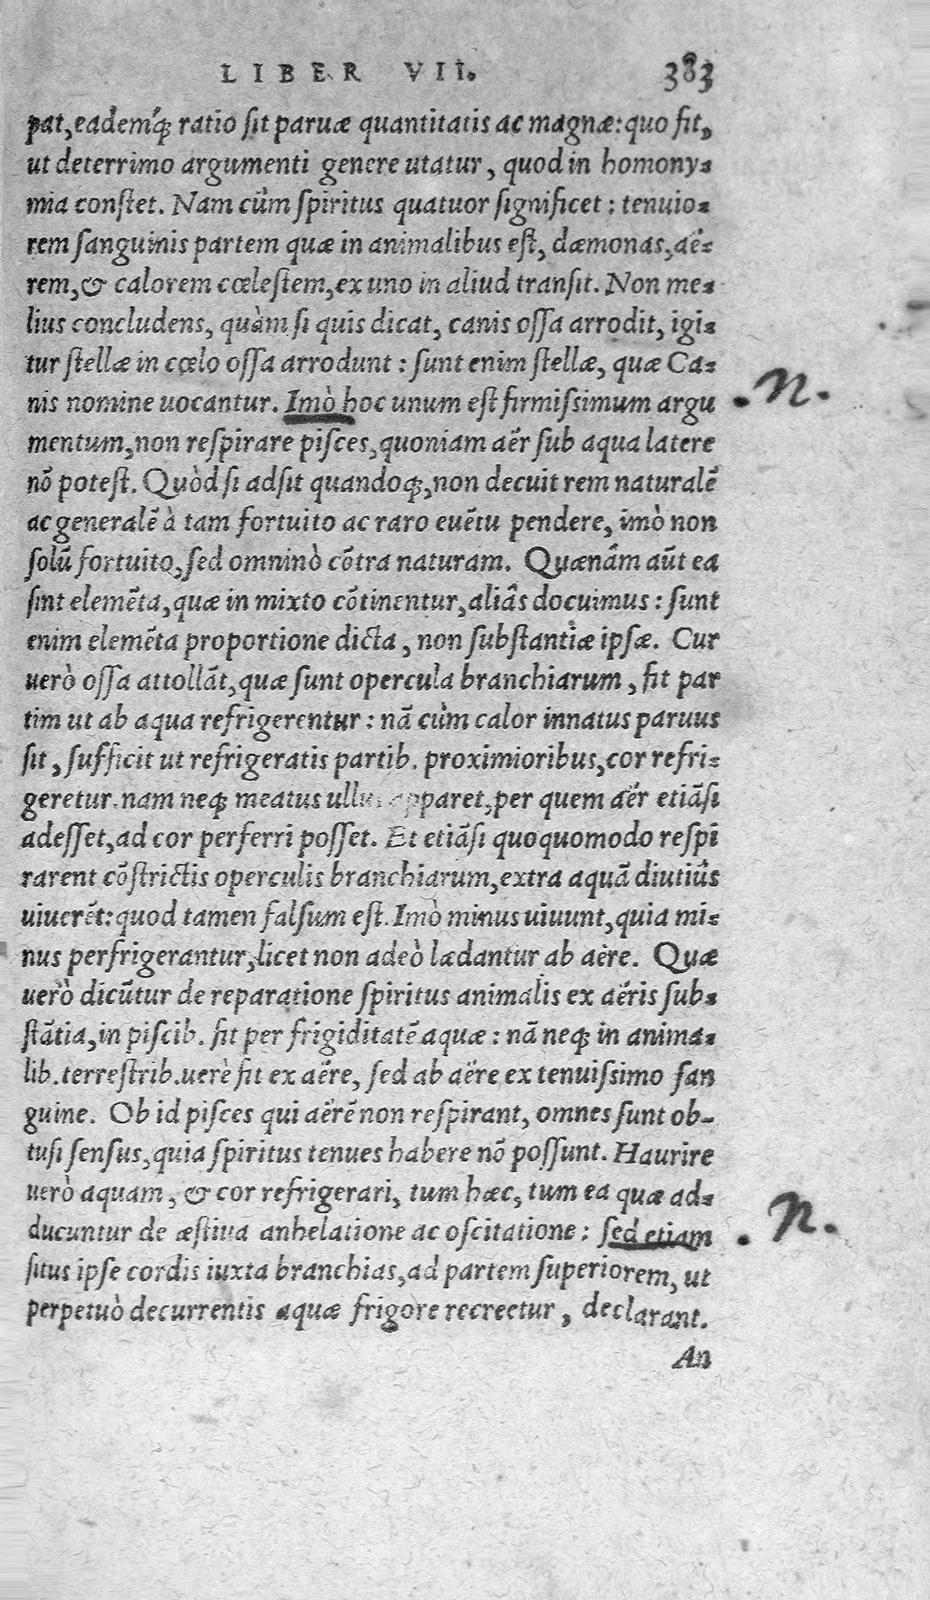 LIBER VII. 383
pat, eademq́; ratio sit paruæ quantitatis ac magnæ: quo fit,
ut deterrimo argumenti genere utatur, quod in homony-
mia constet. Nam cùm spiritus quatuor significet: tenuio-
rem sanguinis partem quæ in animalibus est, dæmonas, aë-
rem, & calorem cœlestem, ex uno in aliud transit. Non me-
lius concludens, quàm si quis dicat, canis ossa arrodit, igi-
tur stellæ in cœlo ossa arrodunt: sunt enim stellæ, quæ Ca-
nis nomine uocantur. Imò hoc unum est firmissimum argu
n.
mentum, non respirare pisces, quoniam aër sub aqua latere
nõ potest. Quòd si adsit quandoq;, non decuit rem naturalẽ
ac generalẽ à tam fortuito ac raro euẽtu pendere, imò non
solũ fortuito, sed omninò cõtra naturam. Quænâm aũt ea
sint elemẽta, quæ in mixto cõtinentur, aliâs docuimus: sunt
enim elemẽta proportione dicta, non substantiæ ipsæ. Cur
uerò ossa attollãt, quæ sunt opercula branchiarum, fit par
tim ut ab aqua refrigerentur: nã cùm calor innatus paruus
sit, sufficit ut refrigeratis partib. proximioribus, cor refri-
geretur. nam neq; meatus ullus apparet, per quem aër etiãsi
adesset, ad cor perferri posset. Et etiãsi quoquomodo respi
rarent cõstrictis operculis branchiarum, extra aquã diutiûs
uiuerẽt: quod tamen falsum est. Imò minus uiuunt, quia mi-
nus perfrigerantur, licet non adeò lædantur ab aëre. Quæ
uerò dicũtur de reparatione spiritus animalis ex aëris sub-
stãtia, in piscib. fit per frigiditatẽ aquæ: nã neq; in anima-
lib. terrestrib. uerè fit ex aëre, sed ab aëre ex tenuissimo san
guine. Ob id pisces qui aërẽ non respirant, omnes sunt ob-
tusi sensus, quia spiritus tenues habere nõ possunt. Haurire
uerò aquam, & cor refrigerari, tum hæc, tum ea quæ ad-
ducuntur de æstiua anhelatione ac oscitatione: sed etiam
n.
situs ipse cordis iuxta branchias, ad partem superiorem, ut
perpetuò decurrentis aquæ frigore recreetur, declarant.
An